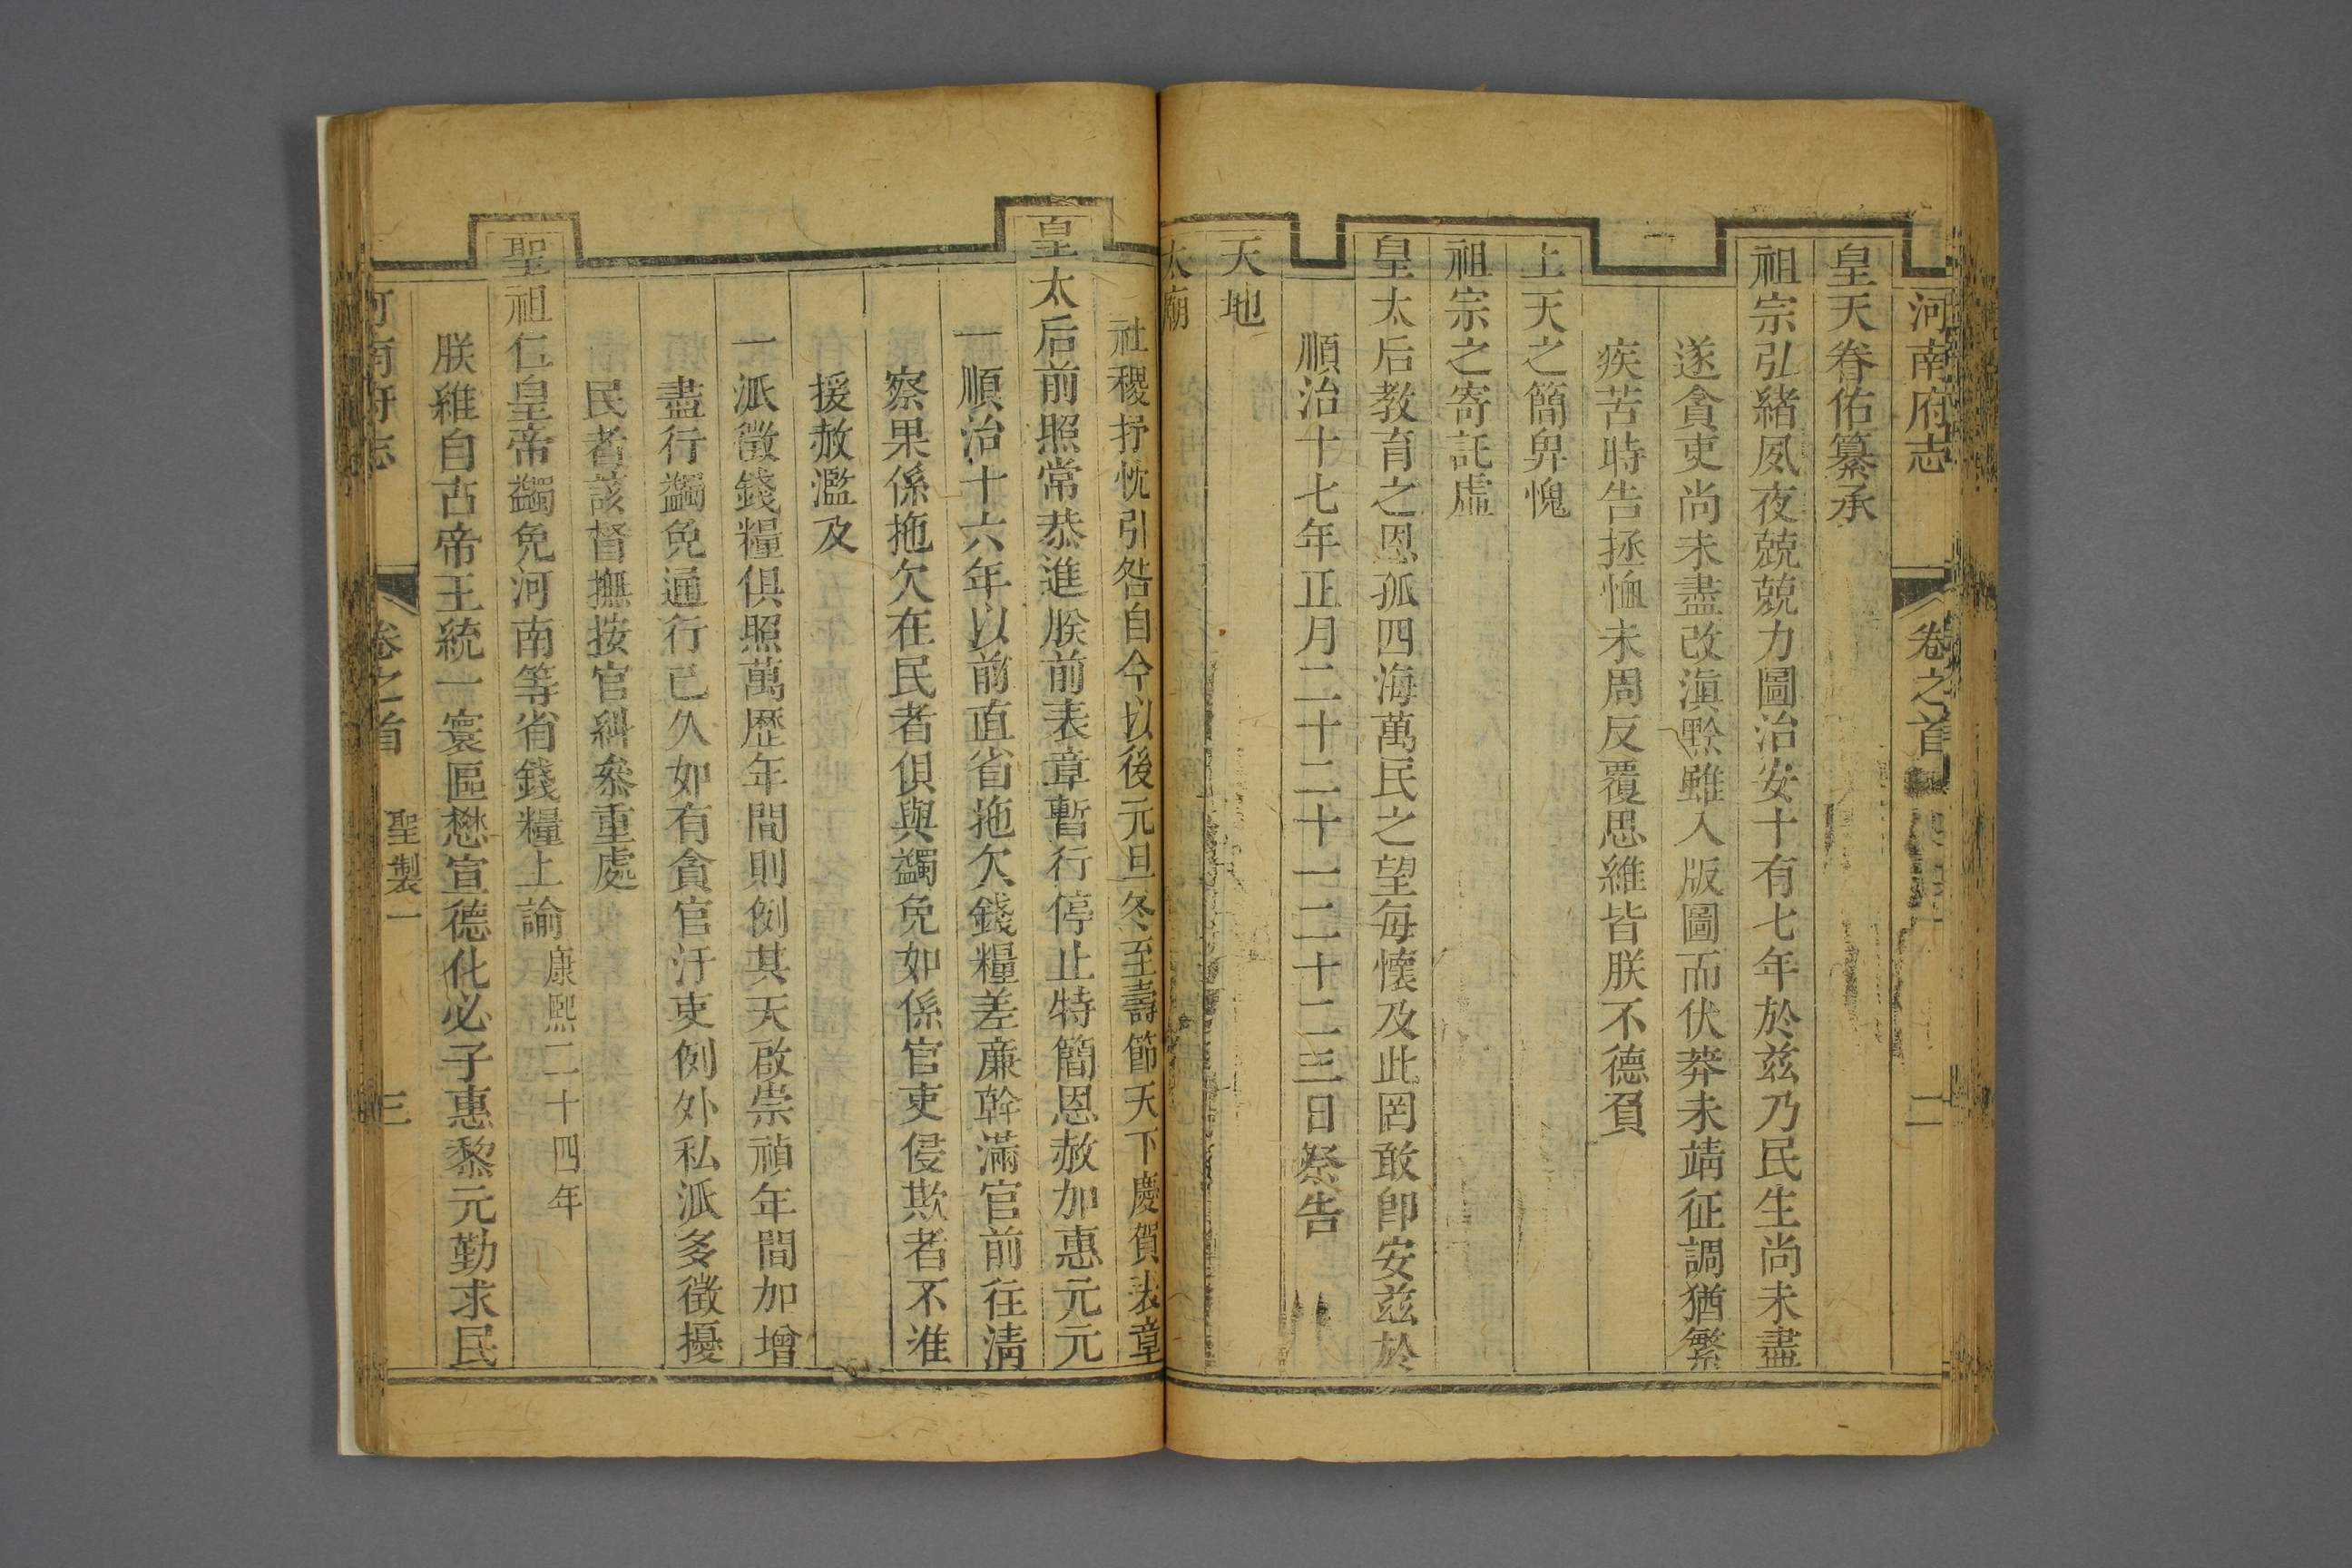 河南府志 卷之首 二
皇天眷佑纂承
祖宗弘緒夙夜兢兢力圖治安十有七年於兹乃民生尚未盡
遂貪吏尚未盡改滇黔雖入版圖而伏莽未靖征調猶繁
疾苦時告拯恤未周反覆思維皆朕不德負
上天之簡畀愧
祖宗之寄託虛
皇太后教育之恩孤四海萬民之望每懷及此罔敢卽安兹於
順治十七年正月二十二十一二十二三日祭告
天地
太廟
社稷抒忱引咎自今以後元旦冬至壽節天下慶賀表章
皇太后前照常恭進朕前表章暫行停止特簡恩赦加惠元元
一順治十六年以前直省拖欠錢糧差廉幹滿官前往淸
察果係拖欠在民者俱與蠲免如係官吏侵欺者不准
援赦濫及
一派徵錢糧俱照萬歷年間則例其天啟崇禎年間加增
盡行蠲免通行已久如有貪官汙吏例外私派多徵擾
民者該督撫按官糾叅重處
聖祖仁皇帝蠲免河南等省錢糧上諭 康熙二十四年
朕維自古帝王統一寰區懋宣德化必子惠黎元勤求民
河南府志 卷之首 聖製一 三